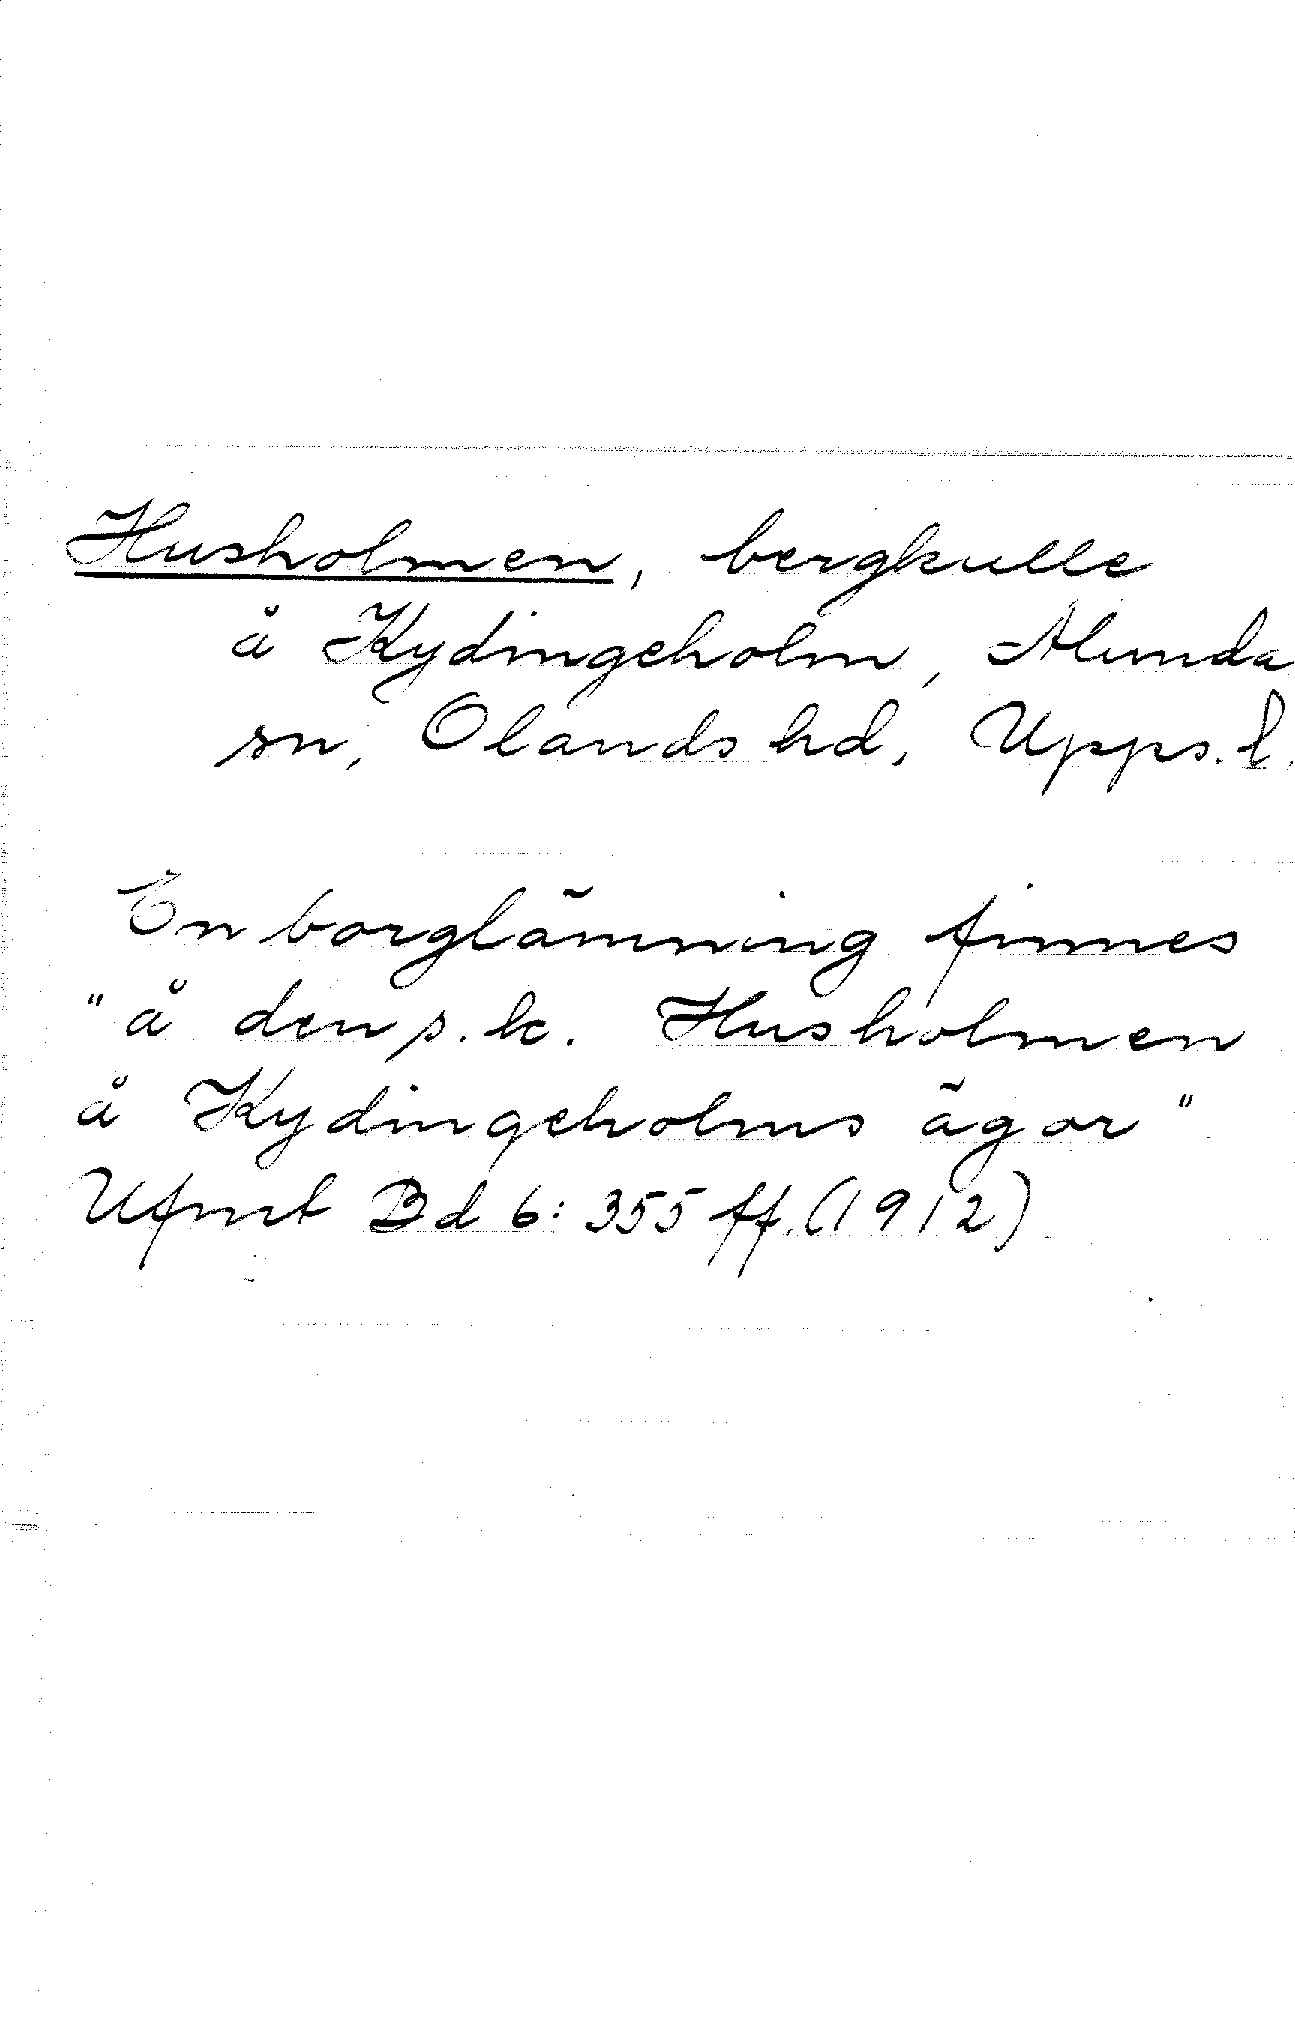 Husholmen, bergkulle
å Kydingeholm, Alunda
sn, Olands hd, Upps. l.
En borglämning finnes
"å den s.k. Husholmen
å Kydingeholms ägor"
Ufmt Bd 6: 355 ff. (1912)